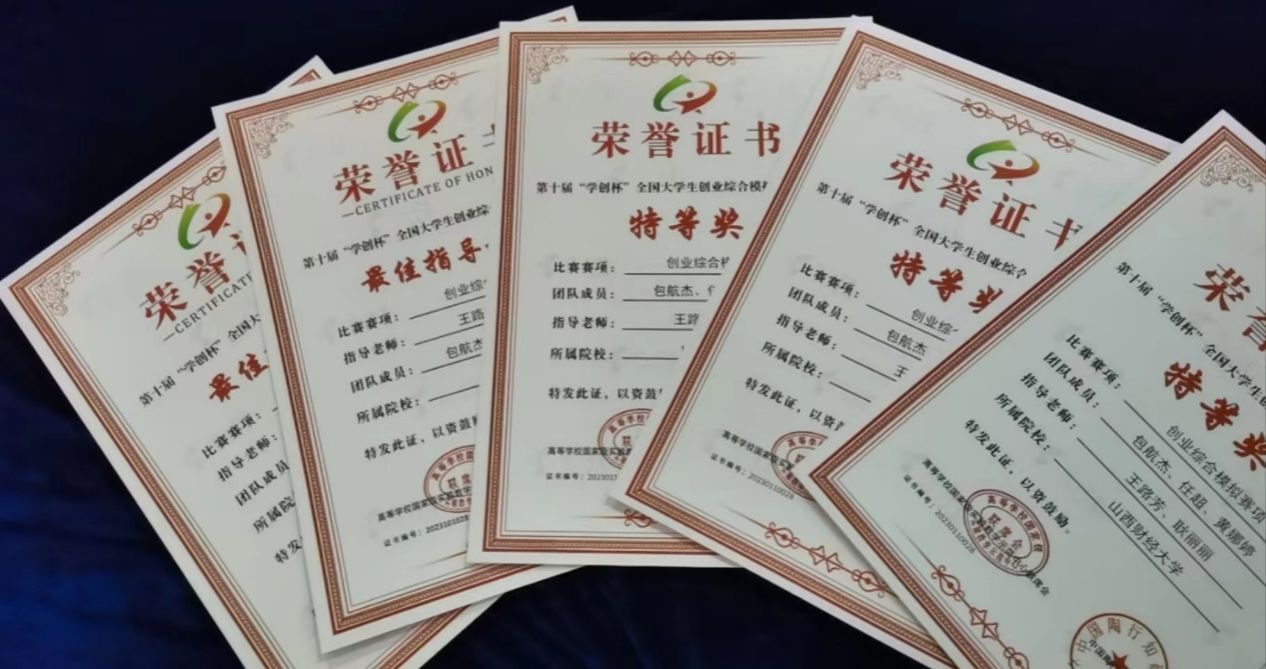 荣誉证
CERTIFICATE
第十届“学创杯”全国大
最佳
比赛赛项：
指导老师：
团队成员
所属院
特发
荣誉证书
CERTIFICATE OF HON
第十届“学创杯”全国大学生创业综
最佳指导
比赛赛项： 创业综
指导老师： 王路
团队成员： 包航杰
所属院校：
特发此证，以资鼓
高等学校国家级实验教学
证书编号：2023101028
荣誉证书
第十届“学创杯”全国大学生创业综合模
特等奖
比赛赛项： 创业综合模
团队成员： 包航杰、
指导老师： 王路
所属院校：
特发此证，以资鼓
高等学校国家级实
证书编号：202301
荣誉证书
第十届“学创杯”全国大学生创业综合
特等奖
比赛赛项： 创业综
团队成员： 包航杰
指导老师： 王
所属院校：
特发此证，以资
高等学校国家级实
证书编号：20230110028
荣誉
第十届“学创杯”全国大学生创
特等奖
比赛赛项： 创业综合模拟赛项
团队成员： 包航杰、任超、黄娜婷
指导老师： 王路芳、耿丽丽
所属院校： 山西财经大学
特发此证，以资鼓励。
证书编号：20230110028
高等学校国家级
联席会
中国陶行知